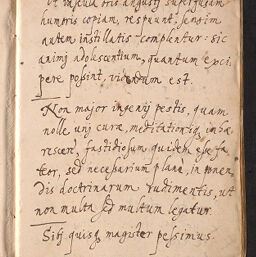 Ut vascula oris angusti superfusam
humoris copiam, respuunt, sensim
autem instillatis complentur: sic
animi adolescentium, quantum exci
pere possint, videndum est.
Non major ingenij pestis, quam
nolle unj curæ, meditationiq imba
rescere, fastidiosum quidem ese fa
teor, sed necesarium planè, in ponen
dis doctrinarum rudimentis, ut
non multa sed multum legatur.
Sibj quisq magister pessimus.